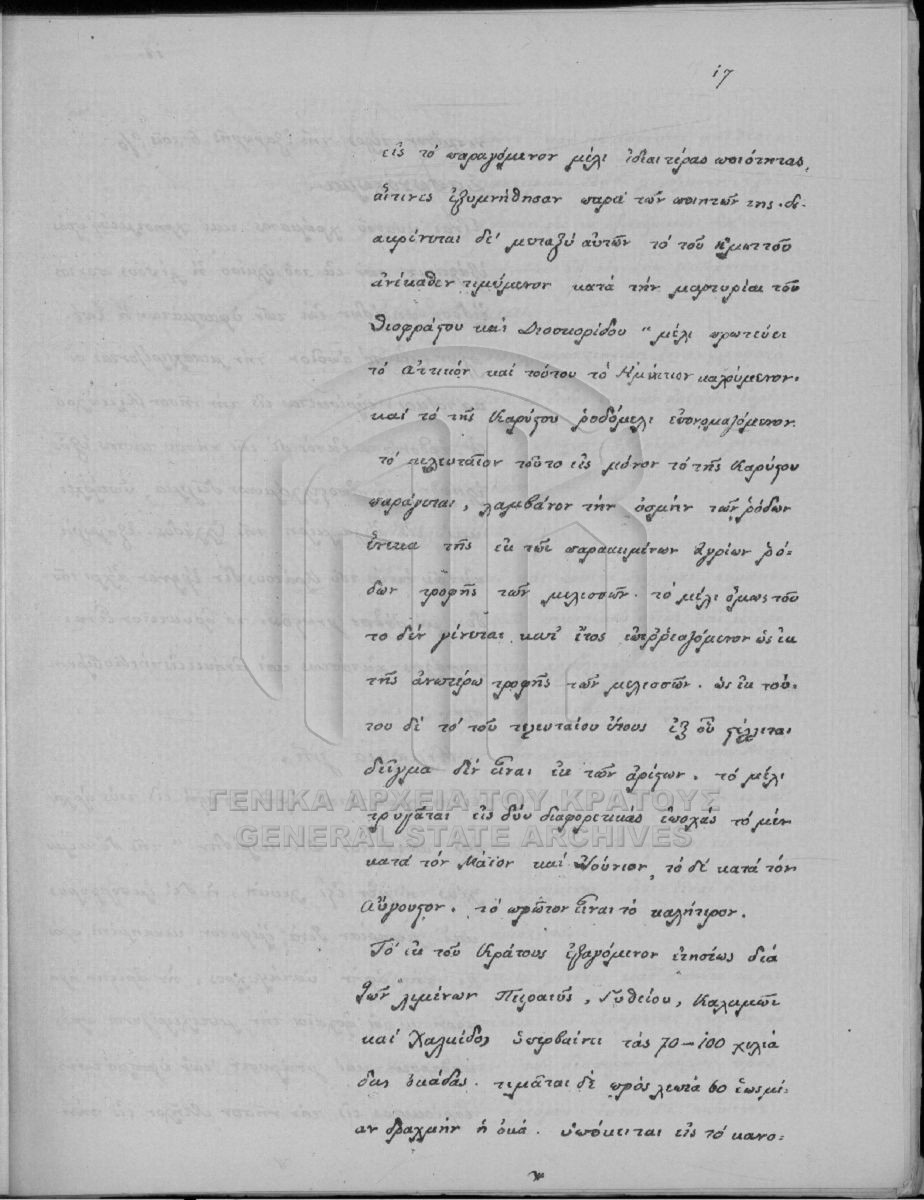 17
εἰς τό παραγόμενον μέλι ἰδιαιτέρας ποιότητας,
αἵτινες ἐξυμνήθησαν παρά τῶν ποιητῶν της. δι-
ακρίνεται δέ μεταξύ αὐτῶν τό τοῦ Ὑμηττοῦ
ἀνέκαθεν τιμώμενον κατά τήν μαρτυρίαν τοῦ
Θεοφράστου καί Διοσκορίδου "μέλι πρωτεύει
τό Ἀττικόν καί τούτου τό Ὑμέττιον καλούμενον.
καί τό τῆς Καρύστου ῥοδόμελι ἐπονομαζόμενον.
τό τελευταῖον τοῦτο εἰς μόνον τό τῆς Καρύστου
παράγεται, λαμβάνον τήν ὀσμήν τῶν ῥόδων
ἕνεκα τῆς ἐκ τῶν παρακειμένων ἀγρίων ῥό-
δων τροφῆς τῶν μελισσῶν. τό μέλι ὅμως τοῦ
το δέν γίνεται κατ' ἔτος ἐπηρεαζόμενον ὡς ἐκ
τῆς ἀνωτέρω τροφῆς τῶν μελισσῶν. ὡς ἐκ τού-
του δέ τό τοῦ τελευταίου ἔτους ἐξ οὗ στέλλεται
δεῖγμα δέν εἶναι ἐκ τῶν ἀρίστων. τό μέλι
τρυγᾶται εἰς δύο διαφορετικάς ἐποχάς τό μέν
κατά τόν Μάϊον καί Ἰούνιον, τό δέ κατά τόν
Αὔγουστον. τό πρῶτον εἶναι τό καλήτερον.
Τό ἐκ τοῦ Κράτους ἐξαγόμενον ἐτησίως διά
τῶν λιμένων Πειραιῶς, Γυθείου, Καλαμῶν
καί Χαλκίδος ὑπερβαίνει τάς 70–100 χιλιά
δας ὀκάδας. τιμᾶται δέ πρός λεπτά 60 ἕως μί-
αν δραχμήν ἡ ὀκά. ὑπόκειται εἰς τό κανο-
ΓΕΝΙΚΑ ΑΡΧΕΙΑ ΤΟΥ ΚΡΑΤΟΥΣ
GENERAL STATE ARCHIVES